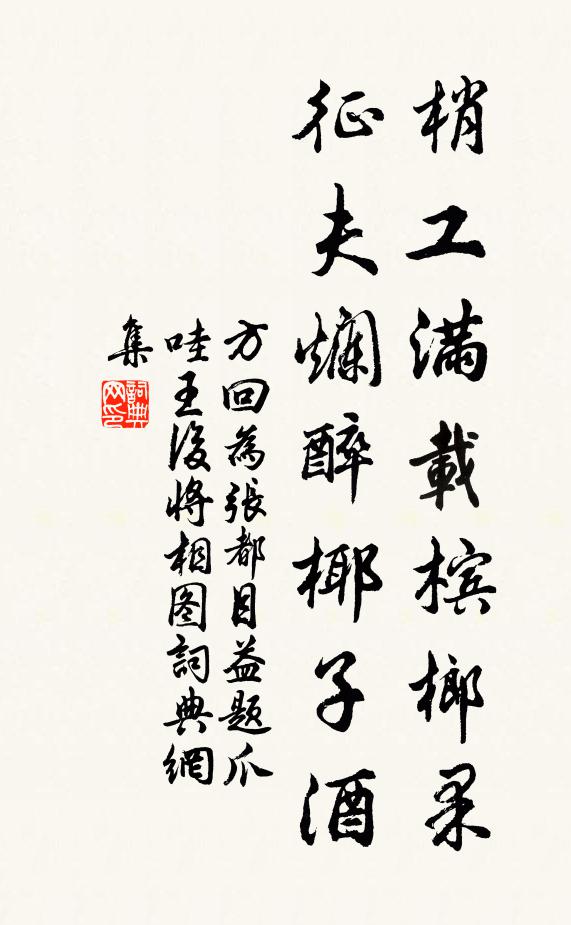 梢工滿載檳榔果
征夫爛醉椰子酒
方回為張都目益題爪
哇王後將相图詞典網
集
詞典网印